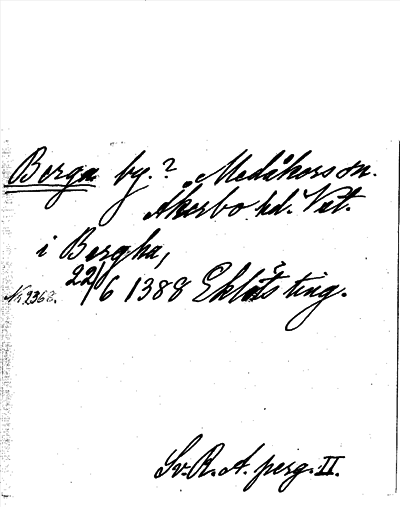 Berga by.? Medåkers sn.
Åkerbo hd. Vstl.
i Bergha,
Nr 2368. 22/6 1388 Eklöfs ting.
Sv. R. A. perg. II.